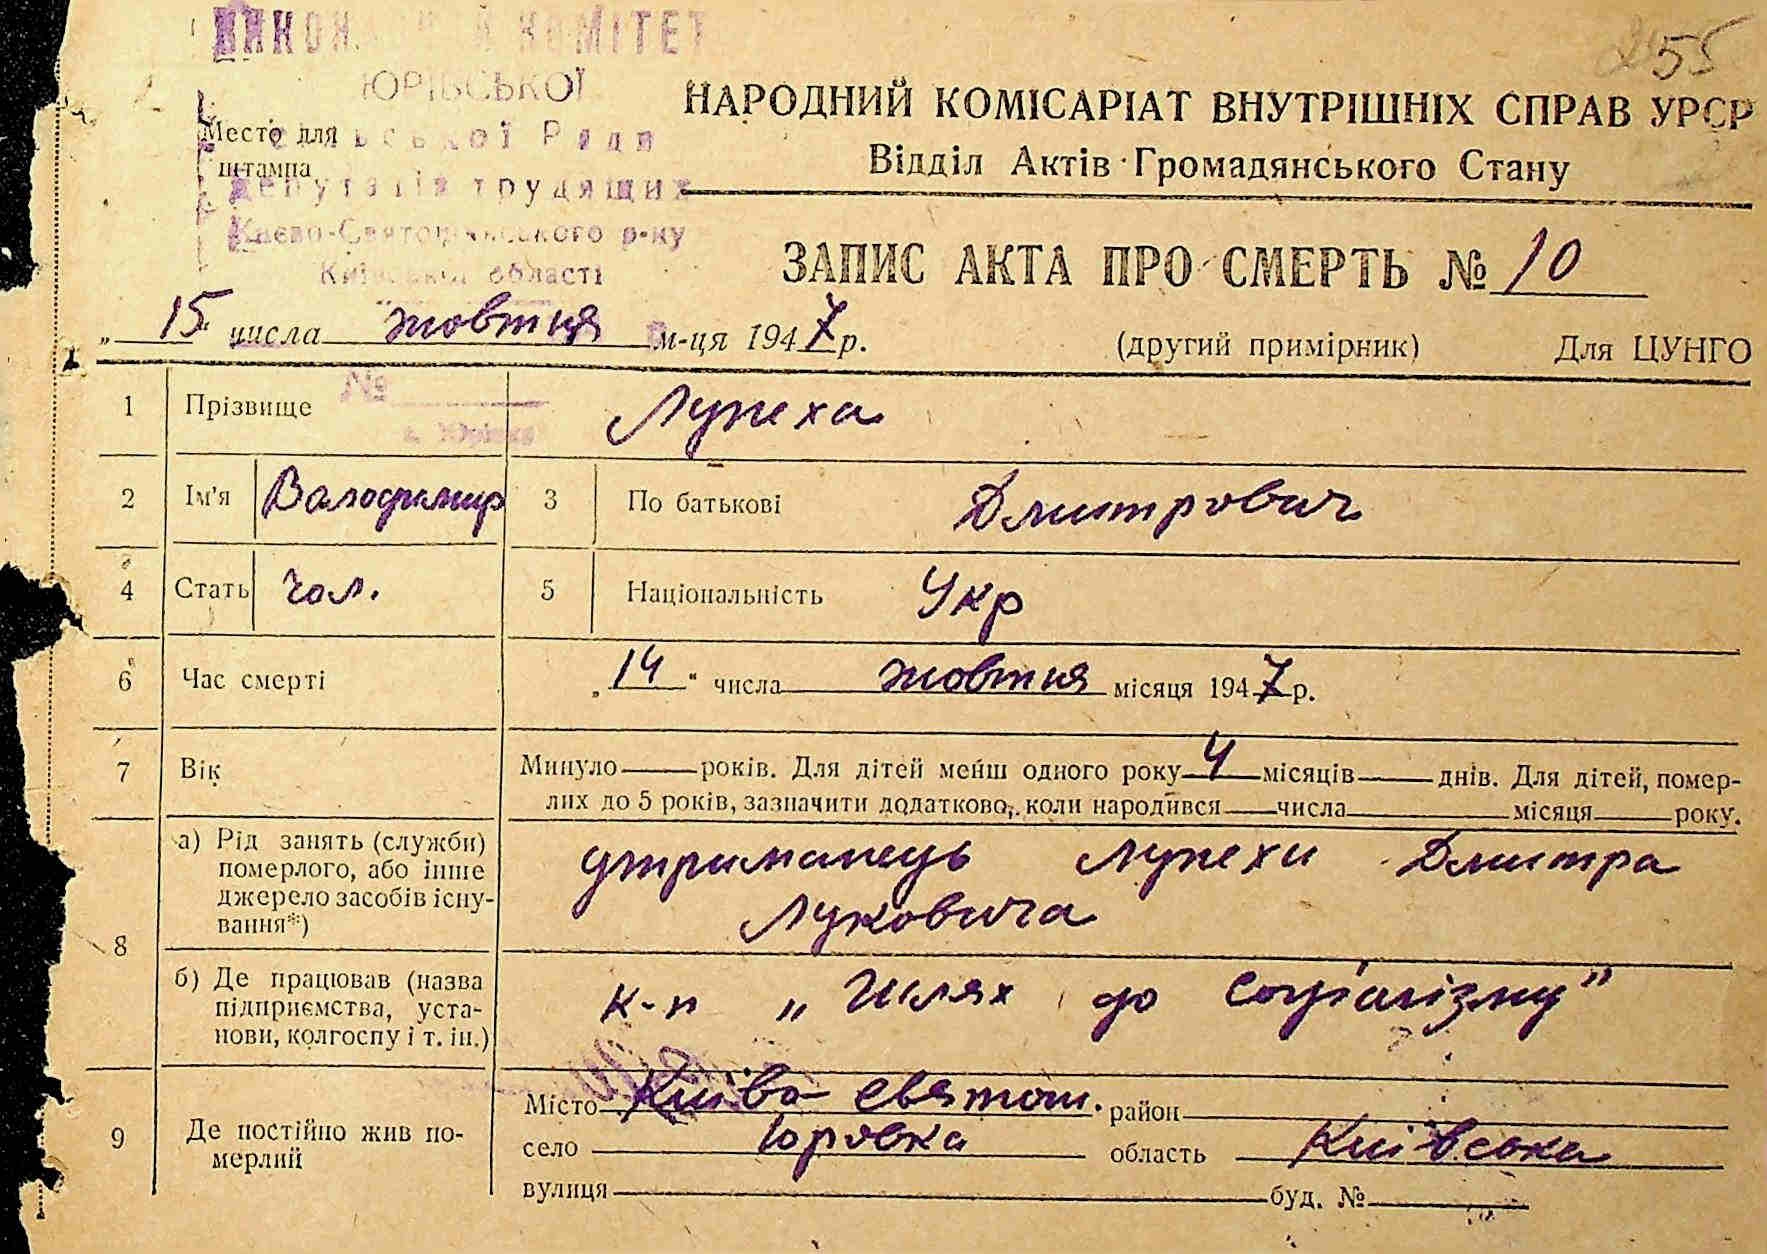 255
ВИКОНАВЧИЙ КОМІТЕТ
ЮРІВСЬКОЇ
сільської Ради
депутатів трудящих
Києво-Святошинського р-ну
Київської області
Место для
штампа
НАРОДНИЙ КОМІСАРІАТ ВНУТРІШНІХ СПРАВ УРСР
Відділ Актів Громадянського Стану
ЗАПИС АКТА ПРО СМЕРТЬ № 10
„ 15 “ числа жовтня м-ця 1947 р.
(другий примірник) Для ЦУНГО
№
с. Юрівка
1 Прізвище Лупеха
2 Ім'я Володимир 3 По батькові Дмитрович
4 Стать чол. 5 Національність Укр
6 Час смерті „ 14 “ числа жовтня місяця 1947 р.
7 Вік Минуло років. Для дітей менш одного року 4 місяців днів. Для дітей, помер-
лих до 5 років, зазначити додатково, коли народився числа місяця року.
8 а) Рід занять (служби)
померлого, або інше
джерело засобів існу-
вання*)
утриманець Лупехи Дмитра
Луковича
б) Де працював (назва
підприємства, уста-
нови, колгоспу і т. ін.)
к-п „Шлях до соціалізму”
9 Де постійно жив по-
мерлий
Місто Київо Святош. район
село Юровка область Київська
вулиця буд. №